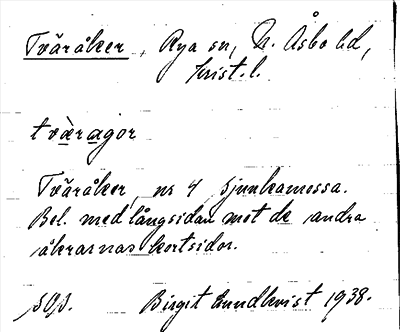 Tväråker, Rya sn, N. Åsbo hd,
Krist. l.
tværagor
Tväråker, nr 4 Sjunkamossa.
Bel. med långsidan mot de andra
åkrarnas kortsidor.
Birgit Lundkvist 1938.